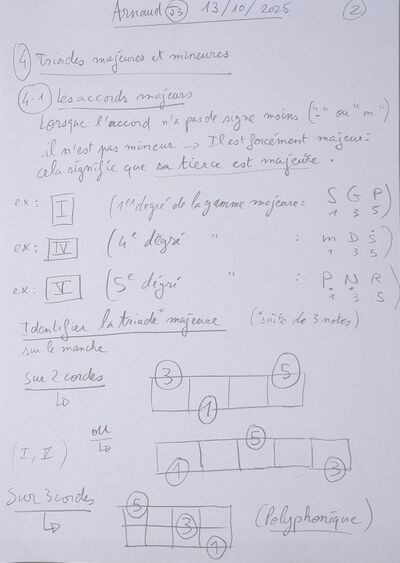 Arnaud J3 13/10/2025 2
4 Triades majeures et mineures
4-1 Les accords majeurs
Lorsque l'accord n'a pas de signe moins ("-" ou "m")
il n'est pas mineur → Il est forcément majeur :
cela signifie que sa tierce est majeure.
ex : I (1er degré de la gamme majeure : S G P)
1 3 5
ex : IV (4e degré " : m D Ṡ)
1 3 5
ex : V (5e degré " : P N R)
1 3 5
Identifier la triade* majeure (*suite de 3 notes)
sur le manche
Sur 2 cordes
3 5
1
ou
(I, V)
5
1 3
Sur 3 cordes
5
3 (Polyphonique)
1